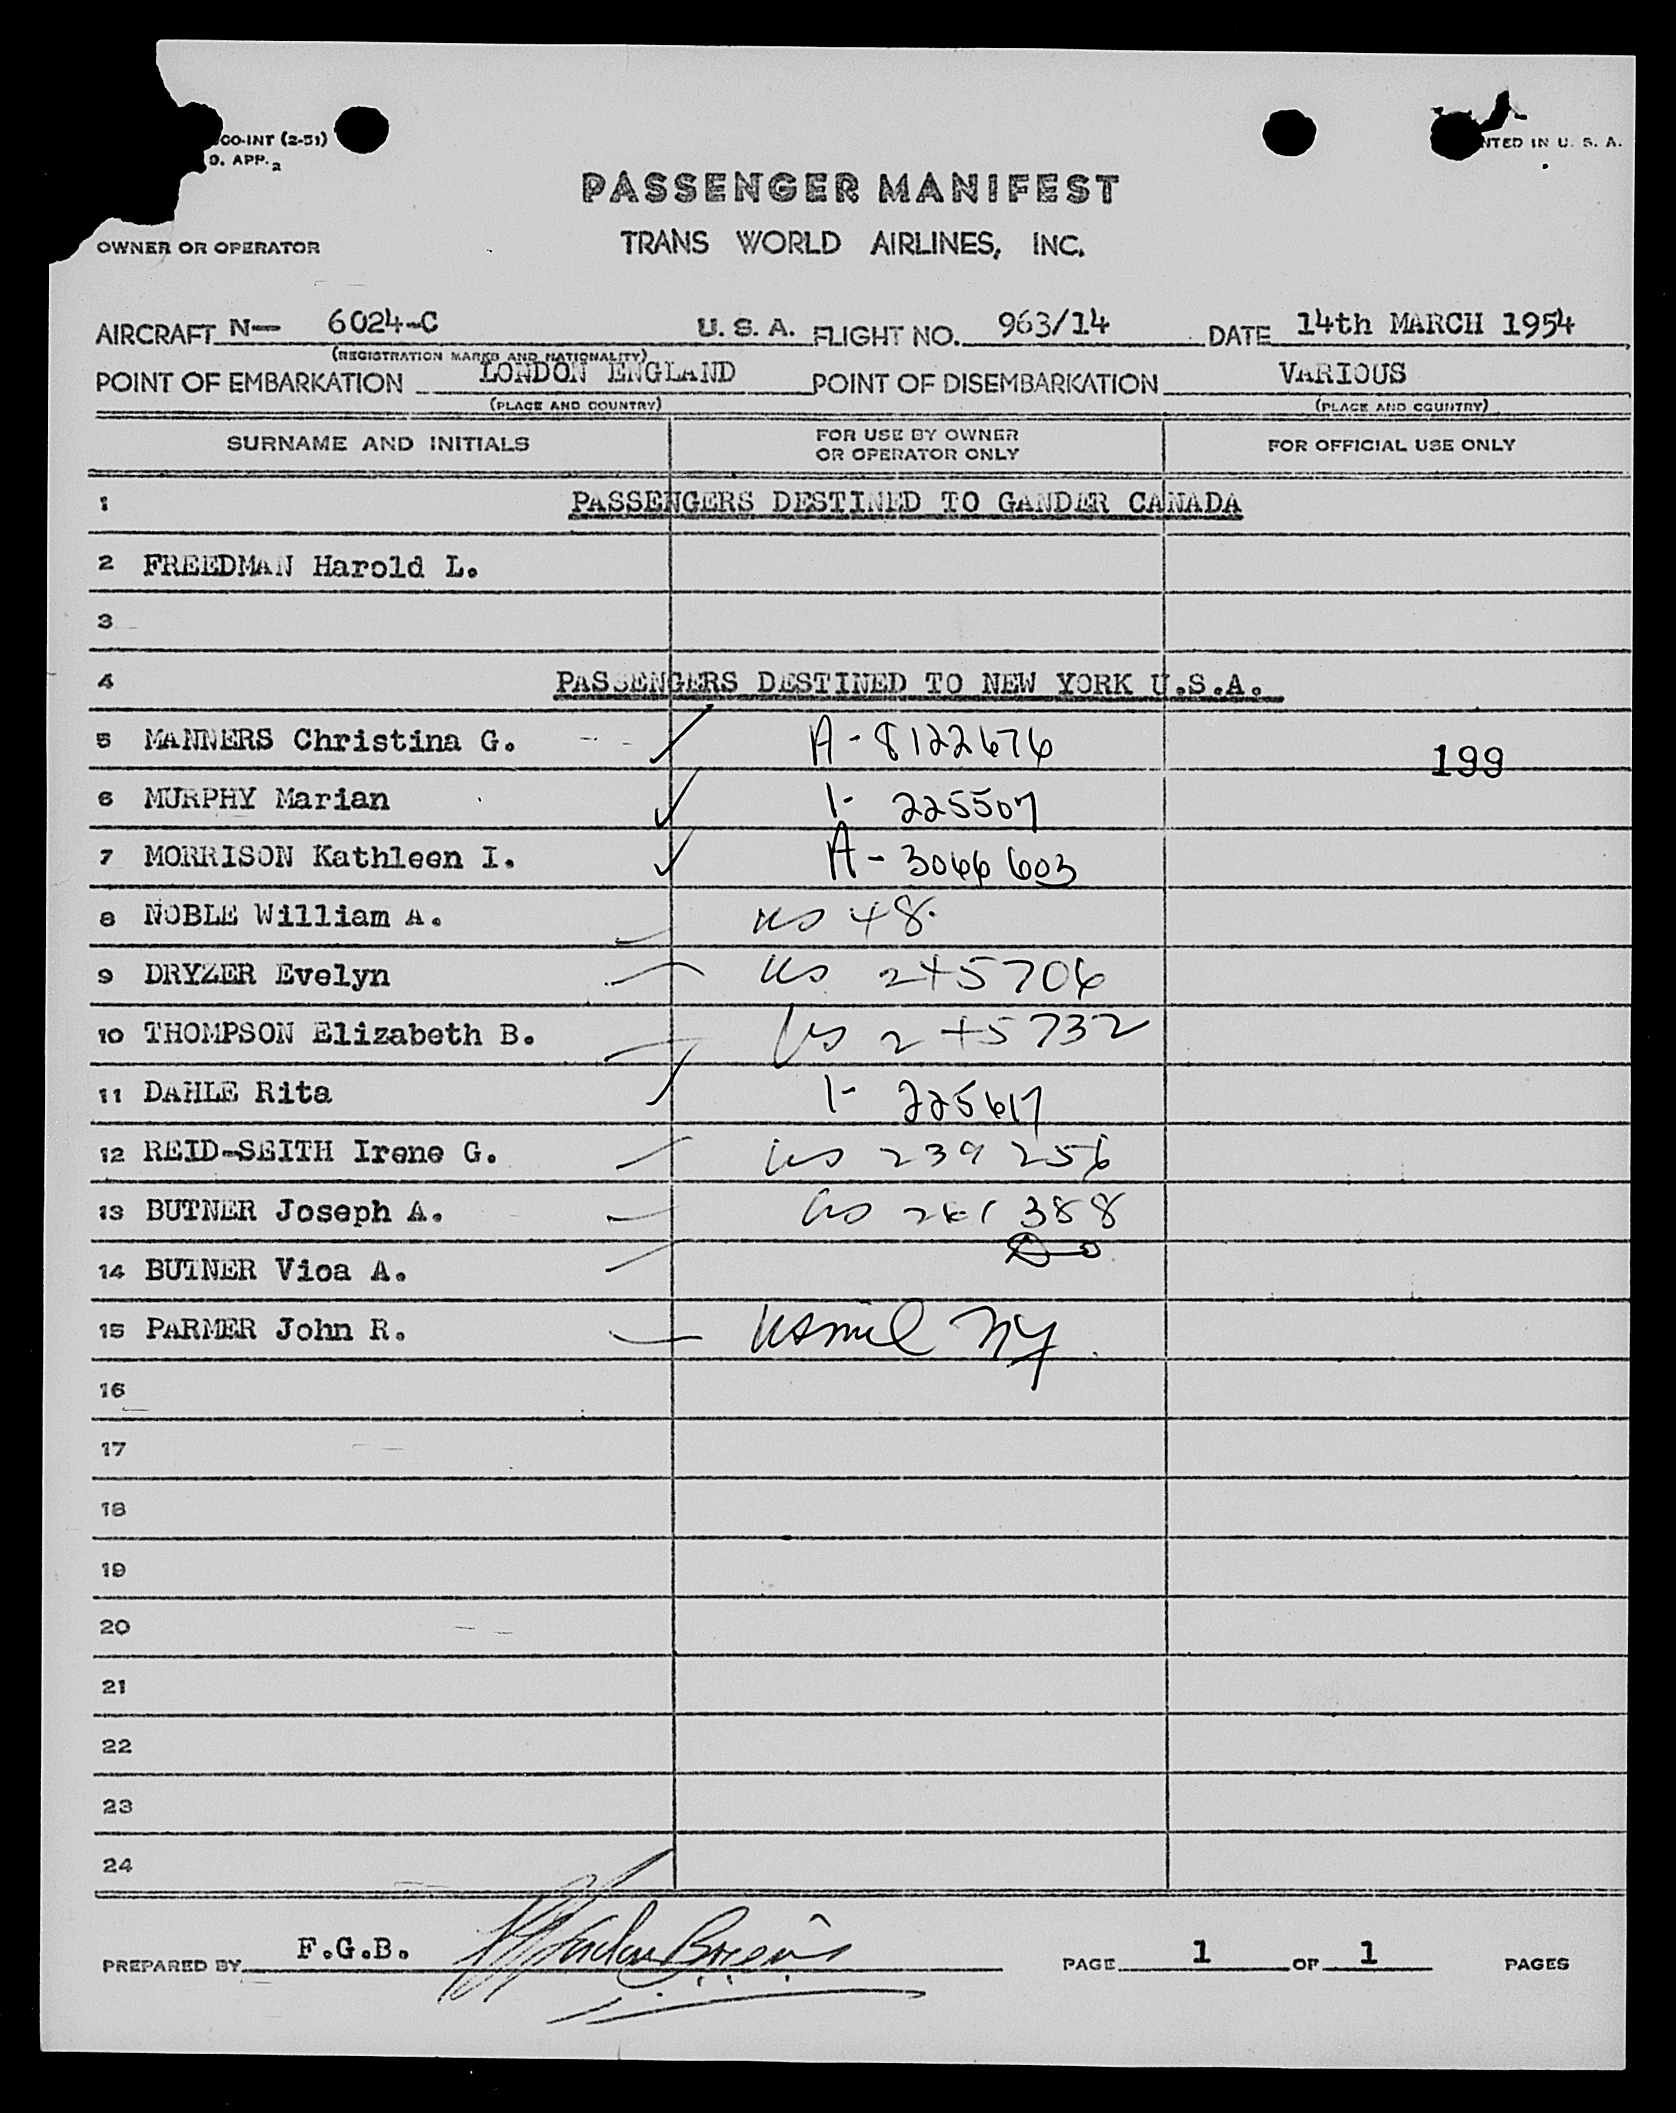 CO-INT (2-51)
O. APP.
NTED IN U. S. A.
PASSENGER MANIFEST
OWNER OR OPERATOR
TRANS WORLD AIRLINES, INC.
AIRCRAFT N— 6024-C U. S. A. FLIGHT NO. 963/14 DATE 14th MARCH 1954
(REGISTRATION MARKS AND NATIONALITY)
POINT OF EMBARKATION LONDON ENGLAND POINT OF DISEMBARKATION VARIOUS
(PLACE AND COUNTRY) (PLACE AND COUNTRY)
SURNAME AND INITIALS FOR USE BY OWNER OR OPERATOR ONLY FOR OFFICIAL USE ONLY
1 PASSENGERS DESTINED TO GANDER CANADA
2 FREEDMAN Harold L.
3
4 PASSENGERS DESTINED TO NEW YORK U.S.A.
5 MANNERS Christina G. A-8122676 199
6 MURPHY Marian 1- 225507
7 MORRISON Kathleen I. A-3066603
8 NOBLE William A. us 48.
9 DRYZER Evelyn us 245706
10 THOMPSON Elizabeth B. us 245732
11 DAHLE Rita 1- 225617
12 REID-SEITH Irene G. us 239256
13 BUTNER Joseph A. us 388
14 BUTNER Vioa A. Do
15 PARMER John R. usmil NY
16
17
18
19
20
21
22
23
24
PREPARED BY F.G.B. PAGE 1 OF 1 PAGES